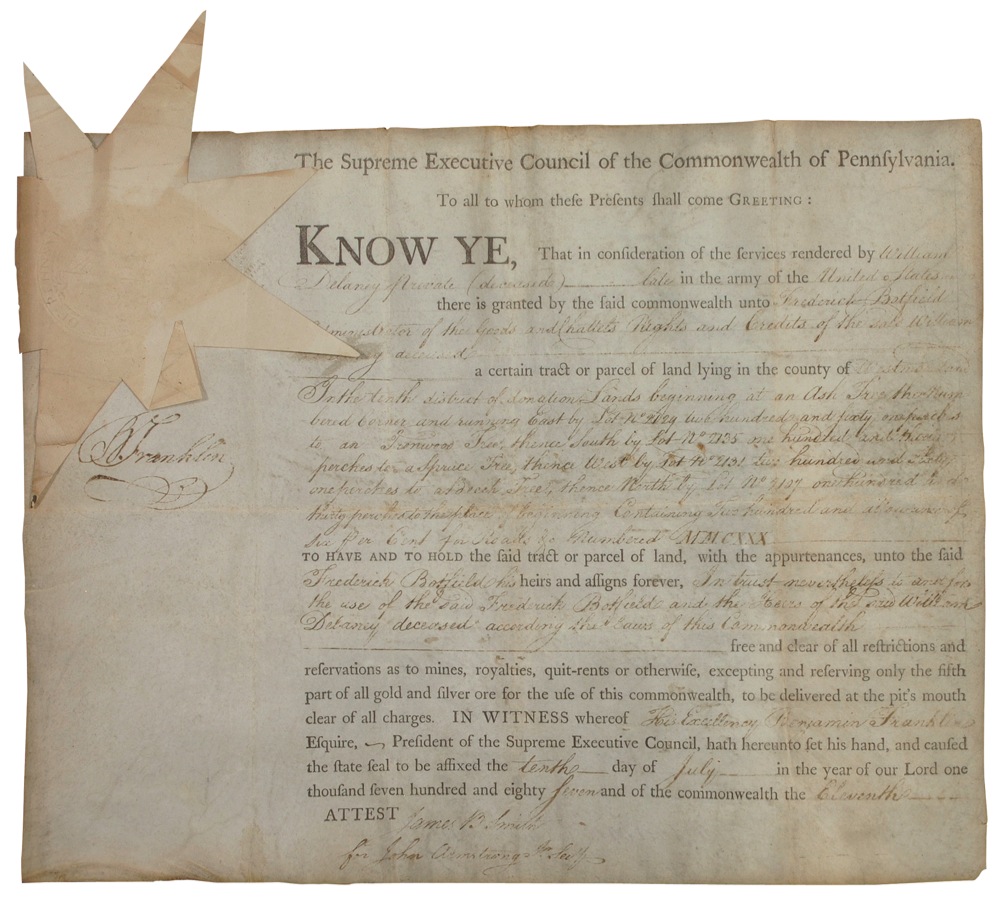 The Supreme Executive Council of the Commonwealth of Pennſylvania.
To all to whom theſe Preſents ſhall come GREETING:
KNOW YE, That in conſideration of the ſervices rendered by William
Delaney Private (deceased) late in the army of the United States
there is granted by the ſaid commonwealth unto Frederick Botfield
Administrator of the Goods and Chattels Rights and Credits of the said William
deceased
a certain tract or parcel of land lying in the county of
In the tenth district of Donation Lands beginning at an Ash Tree the Num-
bered corner and running East by Lot No 2129 two hundred and sixty one perches
to an Ironwood Tree, thence South by Lot No 2135 one hundred and thirty
perches to a Spruce Tree, thence West by Lot No 2131 two hundred and sixty
one perches to a Beech Tree, thence North by Lot No 2127 one hundred and
thirty perches to the place of beginning Containing two hundred and allowance of
six Per Cent for Roads &c Numbered MMCXXX
TO HAVE AND TO HOLD the ſaid tract or parcel of land, with the appurtenances, unto the ſaid
Frederick Botfield his heirs and aſſigns forever, In trust nevertheleſs to and for
the use of the said Frederick Botfield and the Heirs of the said William
Delaney deceased according the Laws of this Commonwealth
free and clear of all reſtrictions and
reſervations as to mines, royalties, quit-rents or otherwiſe, excepting and reſerving only the fifth
part of all gold and ſilver ore for the uſe of this commonwealth, to be delivered at the pit's mouth
clear of all charges. IN WITNESS whereof His Excellency Benjamin Franklin
Eſquire, Preſident of the Supreme Executive Council, hath hereunto ſet his hand, and cauſed
the ſtate ſeal to be affixed the tenth day of July in the year of our Lord one
thouſand ſeven hundred and eighty seven and of the commonwealth the Eleventh
ATTEST James B Smith
for John Armstrong Jr Secy
B Franklin